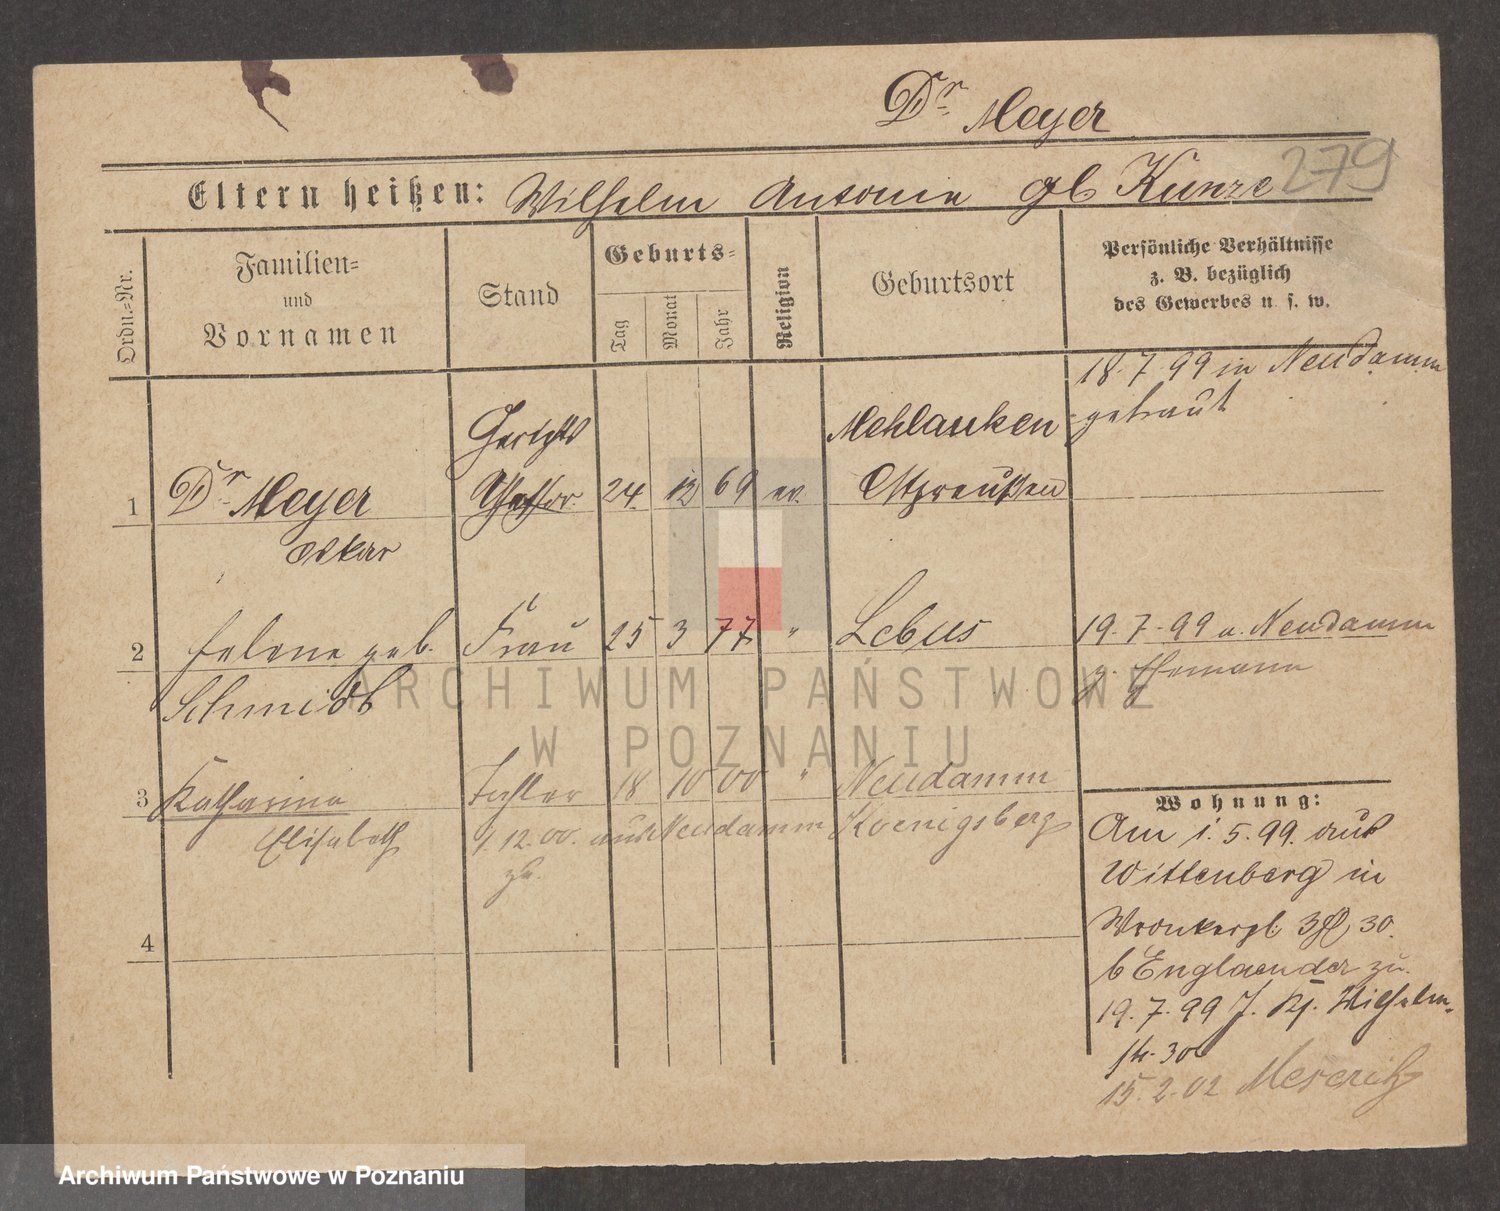 Dr Meyer
279
Eltern heißen: Wilhelm Antonie gb Kunze
Ordn.-Nr.
Familien-
und
Vornamen
Stand
Geburts-
Tag
Monat
Jahr
Religion
Geburtsort
Persönliche Verhältnisse
z. B. bezüglich
des Gewerbes u. s. w.
18.7.99 in Neudamm
getraut
1 Dr Meyer
Oskar
Gerichts
Assessor 24. 12 69 ev.
Mehlauken
Ostpreußen
2 Helene geb.
Schmidt
Frau 25 3 77 " Lebus
19.7.99 a. Neudamm
z. Ehemann
3 Katharina
Elisabeth
Tochter 18 10 00 " Neudamm
Koenigsberg
4.12.00. aus Neudamm
zu.
4
Wohnung:
Am 1.5.99. aus
Wittenberg in
Wronkerpl. 30.
b Englaender zu.
19.7.99 Wilhelm-
str. 30
15.2.02 Meseritz
ARCHIWUM PAŃSTWOWE
W POZNANIU
Archiwum Państwowe w Poznaniu